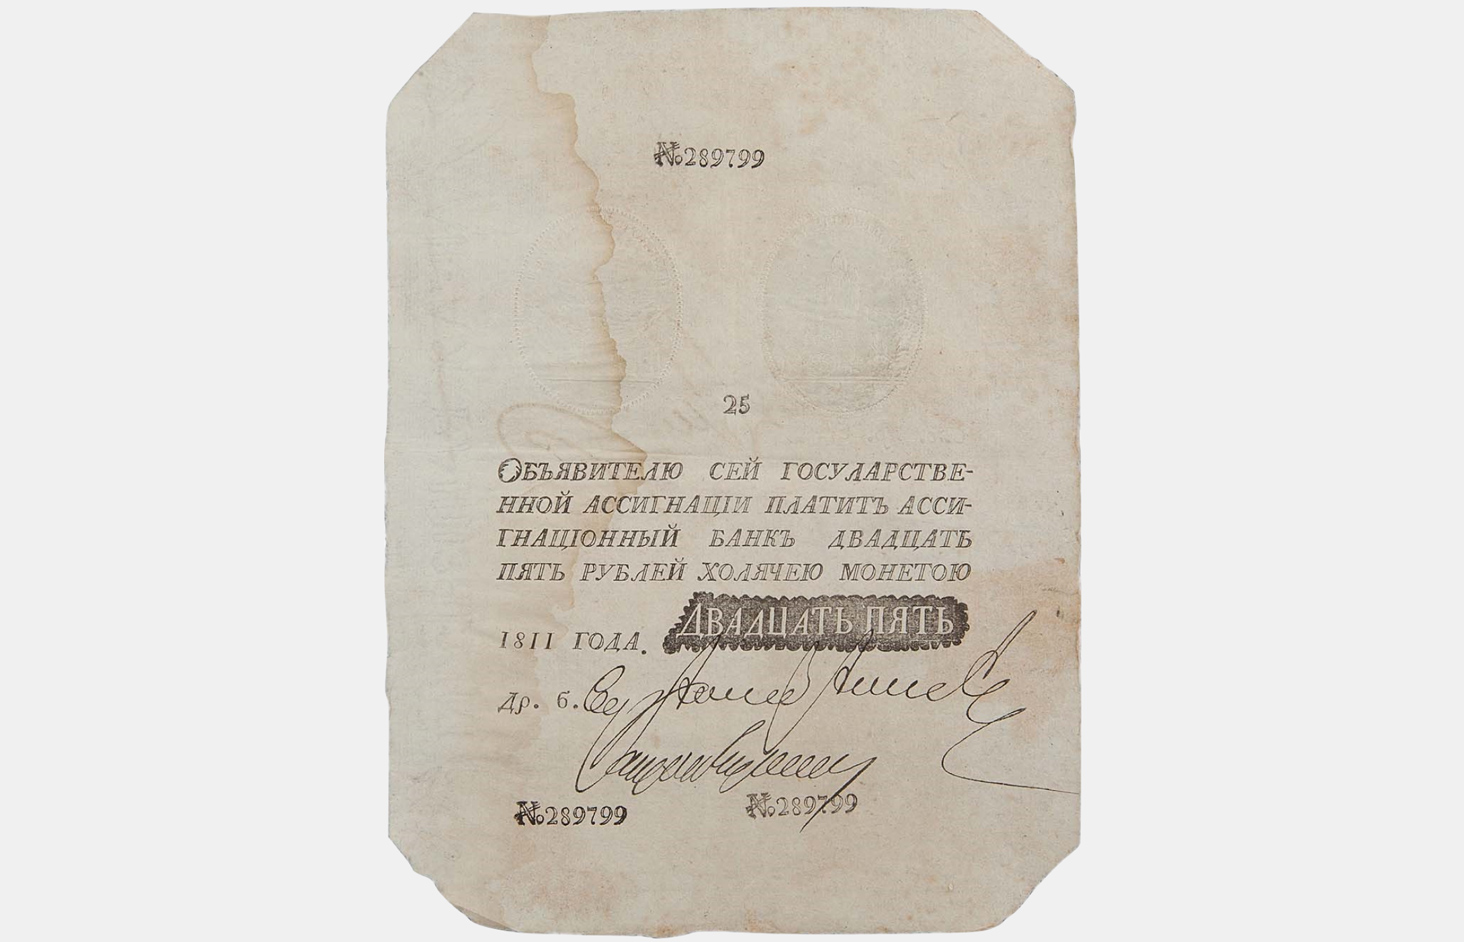 №289799
25
ОБЪЯВИТЕЛЮ СЕЙ ГОСУЛАРСТВЕ-
ННОЙ АССИГНАЦIИ ПЛАТИТЪ АССИ-
ГНАЦIОННЫЙ БАНКЪ ДВАДЦАТЬ
ПЯТЬ РУБЛЕЙ ХОЛЯЧЕЮ МОНЕТОЮ
1811 ГОДА. ДВАДЦАТЬ ПЯТЬ
Др. б.
№289799 №289799